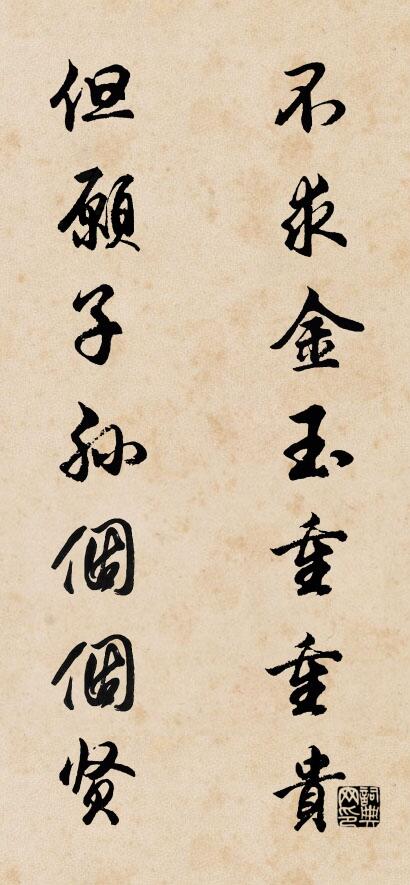 不求金玉重重貴
但願子孙個個贤
詞典网印